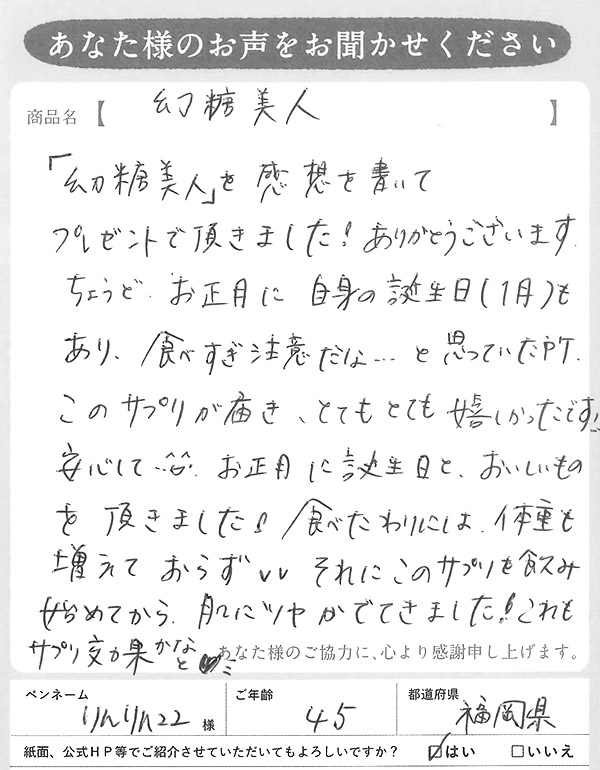 あなた様のお声をお聞かせください
商品名【 幻糖美人 】
「幻糖美人」を感想を書いて
プレゼントで頂きました!ありがとうございます.
ちょうど.お正月に自身の誕生日(1月)も
あり、食べすぎ注意だな…と思っていた所.
このサプリが届き、とてもとても嬉しかったです!
安心して… お正月に誕生日と、おいしいもの
を頂きました!食べたわりには、体重も
増えておらずvv それにこのサプリを飲み
始めてから、肌にツヤがでてきました!これも
サプリ効果かなと
あなた様のご協力に、心より感謝申し上げます。
ペンネーム りんりん22 様 ご年齢 45 都道府県 福岡県
紙面、公式HP等でご紹介させていただいてもよろしいですか? ☑はい □いいえ